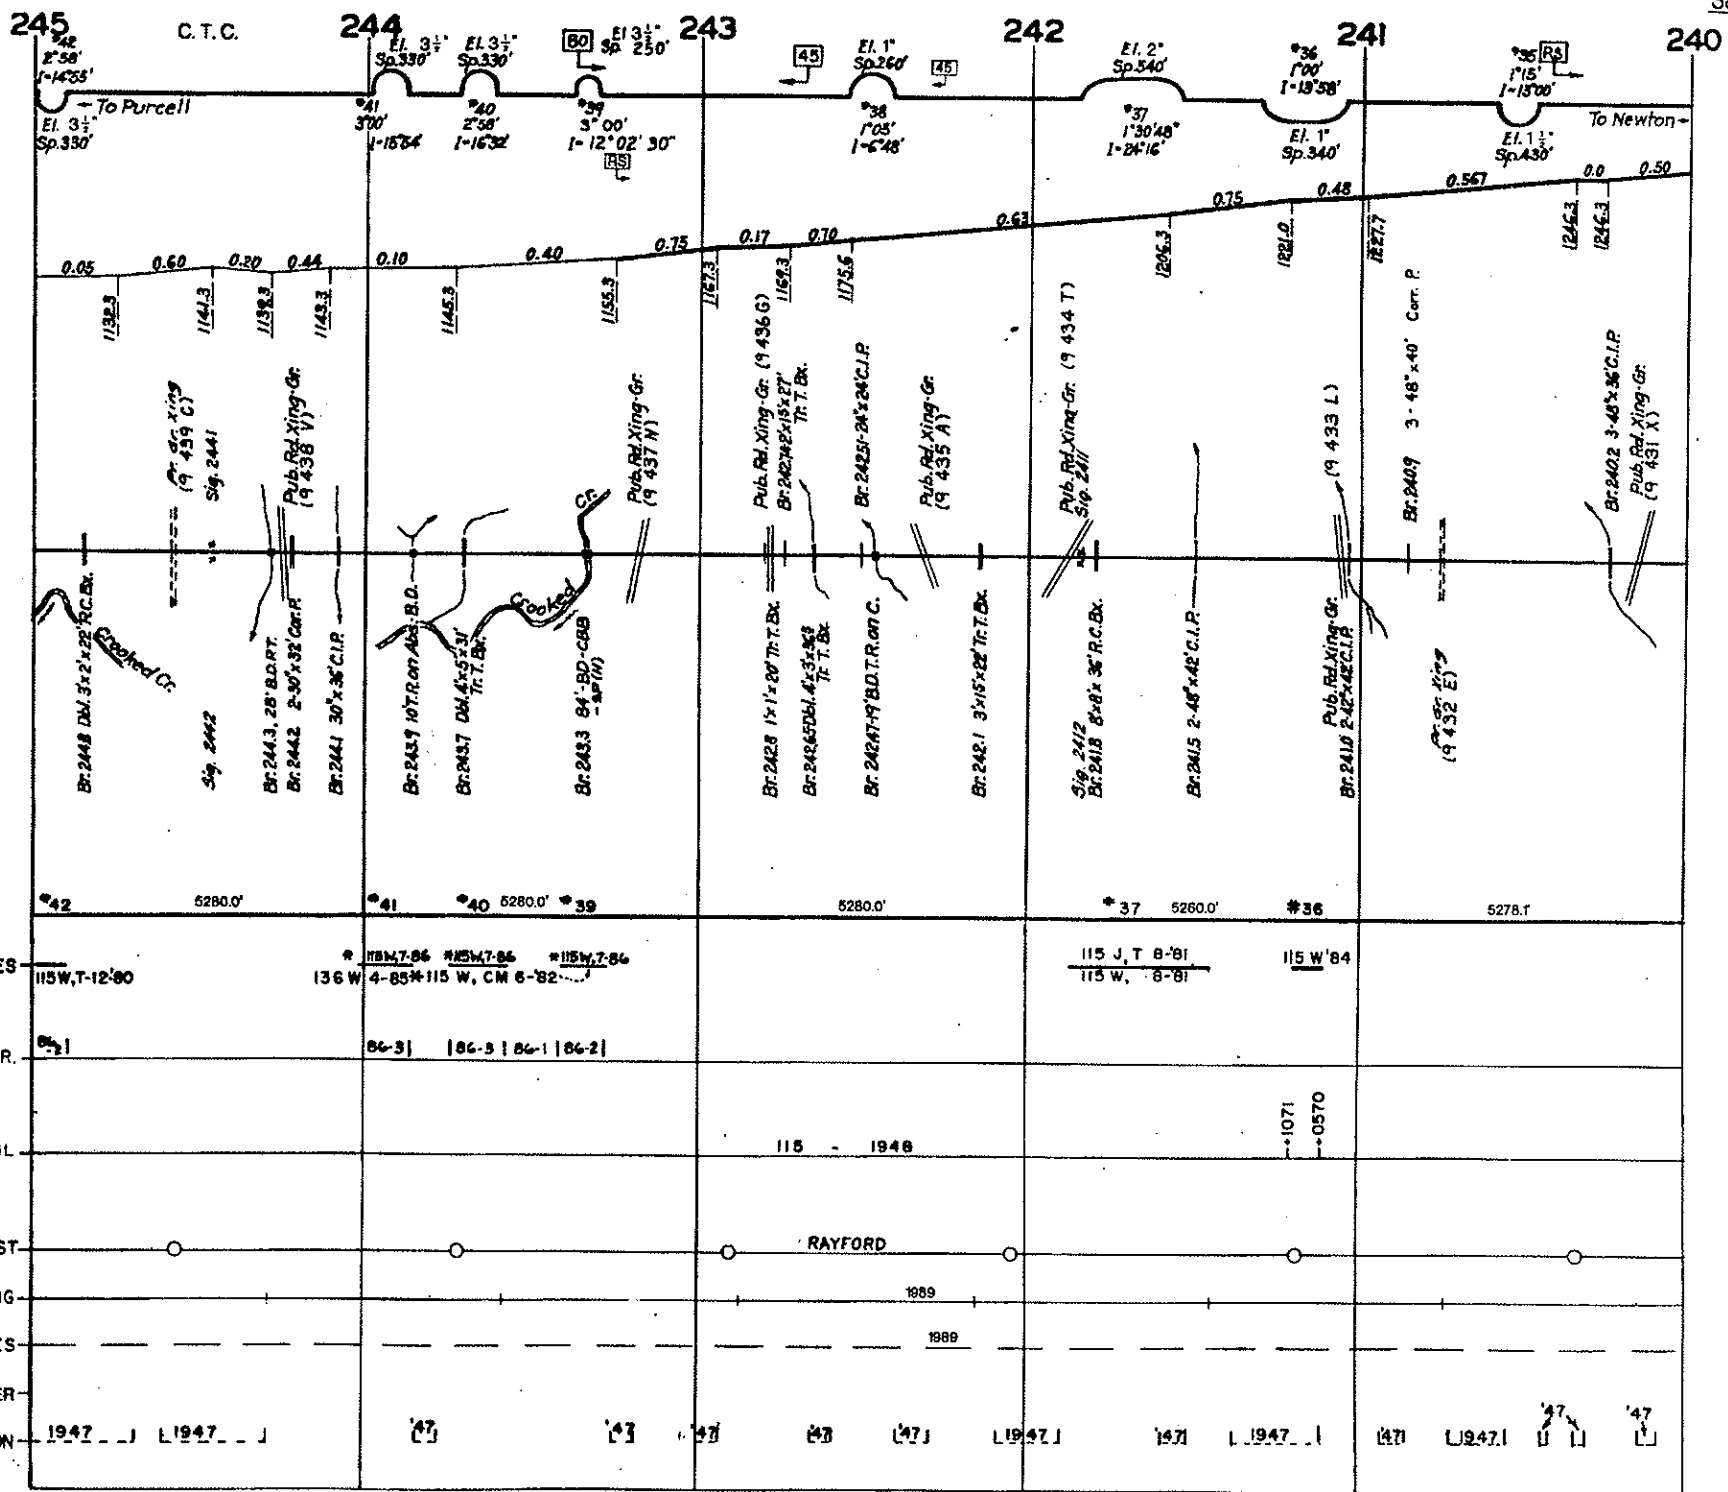 245
C. T. C.
244
243
242
241
240
#42
2°58'
I-14°55'
El. 3½"
Sp.330'
← To Purcell
El. 3½"
Sp.330'
#41
3°00'
El. 3½"
Sp.330'
#40
2°58'
I-16°32'
80
El 3½"
Sp. 250'
#39
3°00'
I-12°02'30"
RS
45
El. 1"
Sp.260'
#38
1°05'
I-6°48'
45
El. 2"
Sp.540'
#37
1°30'48"
I-24°16'
#36
1°00'
I-13°58'
El. 1"
Sp.340'
#35
1°15'
I-13°00'
RS
El. 1½"
Sp.430'
To Newton
0.05
0.60
0.20
0.44
0.10
0.40
0.75
0.17
0.70
0.63
0.75
0.48
0.567
0.0
0.50
1132.3
1141.3
1143.3
1145.3
1155.3
1167.3
1169.3
1175.6
1206.3
1221.0
1227.7
1246.3
1246.3
Pr. Gr. Xing
(9 439 C)
Sig. 2441
Pub.Rd.Xing-Gr.
(9 438 V)
Cr.
Pub.Rd.Xing-Gr.
(9 437 N)
Pub.Rd.Xing-Gr. (9 436 G)
Tr. T. Bx.
Br.242.51-24"x24'C.I.P.
Pub.Rd.Xing-Gr.
(9 435 A)
Pub.Rd.Xing-Gr. (9 434 T)
Sig. 2411
(9 433 L)
Br.240.9 3-48"x40' Corr. P.
Br.240.2 3-48"x36'C.I.P.
Pub.Rd.Xing-Gr.
(9 431 X)
Crooked Cr.
Br.244.8 Dbl.3'x2'x22'R.C.Bx.
Sig. 2442
Br.244.3, 28' B.D.RT.
Br.244.2 2-30"x32'Cor.P.
Br.244.1 30"x36'C.I.P.
Br.243.9 10'T.R.on Abs.-B.D.
Br.243.7 Dbl.4'x5'x31'
Tr.T.Bx.
Crooked
Br.243.3 84'-BD-CBB
Br.242.8 1'x1'x20'Tr.T.Bx.
Br.242.65 Dbl.4'x3'x36.5
Tr.T.Bx.
Br.242.47-19'B.D.T.R.on C.
Br.242.1 3'x1.5'x22'Tr.T.Bx.
Sig. 2412
Br.241.8 8'x8'x36'R.C.Bx.
Br.241.5 2-48"x42'C.I.P.
Pub.Rd.Xing-Gr.
Br.241.0 2-42"x42'C.I.P.
Pr. Gr. Xing
(9 432 E)
#42
5280.0'
#41
#40
5280.0'
#39
5280.0'
#37
5260.0'
#36
5278.1'
ES
115W,T-12-'80
* 115W,7-86 *115W,7-86 *115W,7-86
136 W 4-85*115 W, CM 6-'82
115 J, T 8-'81
115 W, 8-'81
115 W '84
R.
86-2|
86-3|
|86-3 | 86-1 |86-2|
L
115 - 1948
+1071
+0570
ST
RAYFORD
G
1989
ES
1989
ER
ON
1947
1947
'47
'47
'47
'47
'47
1947
'47
1947
'47
1947
'47
'47